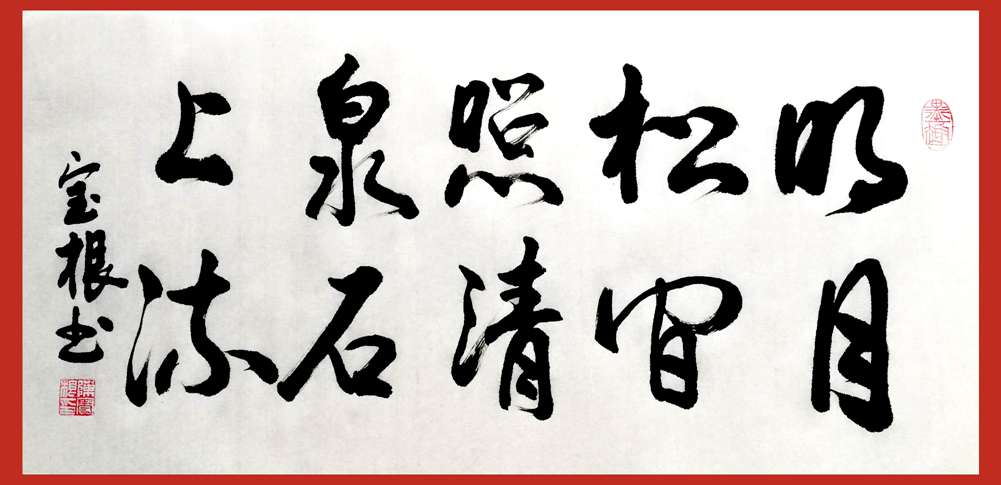 明月
松间
照清
泉石
上流
宝根书